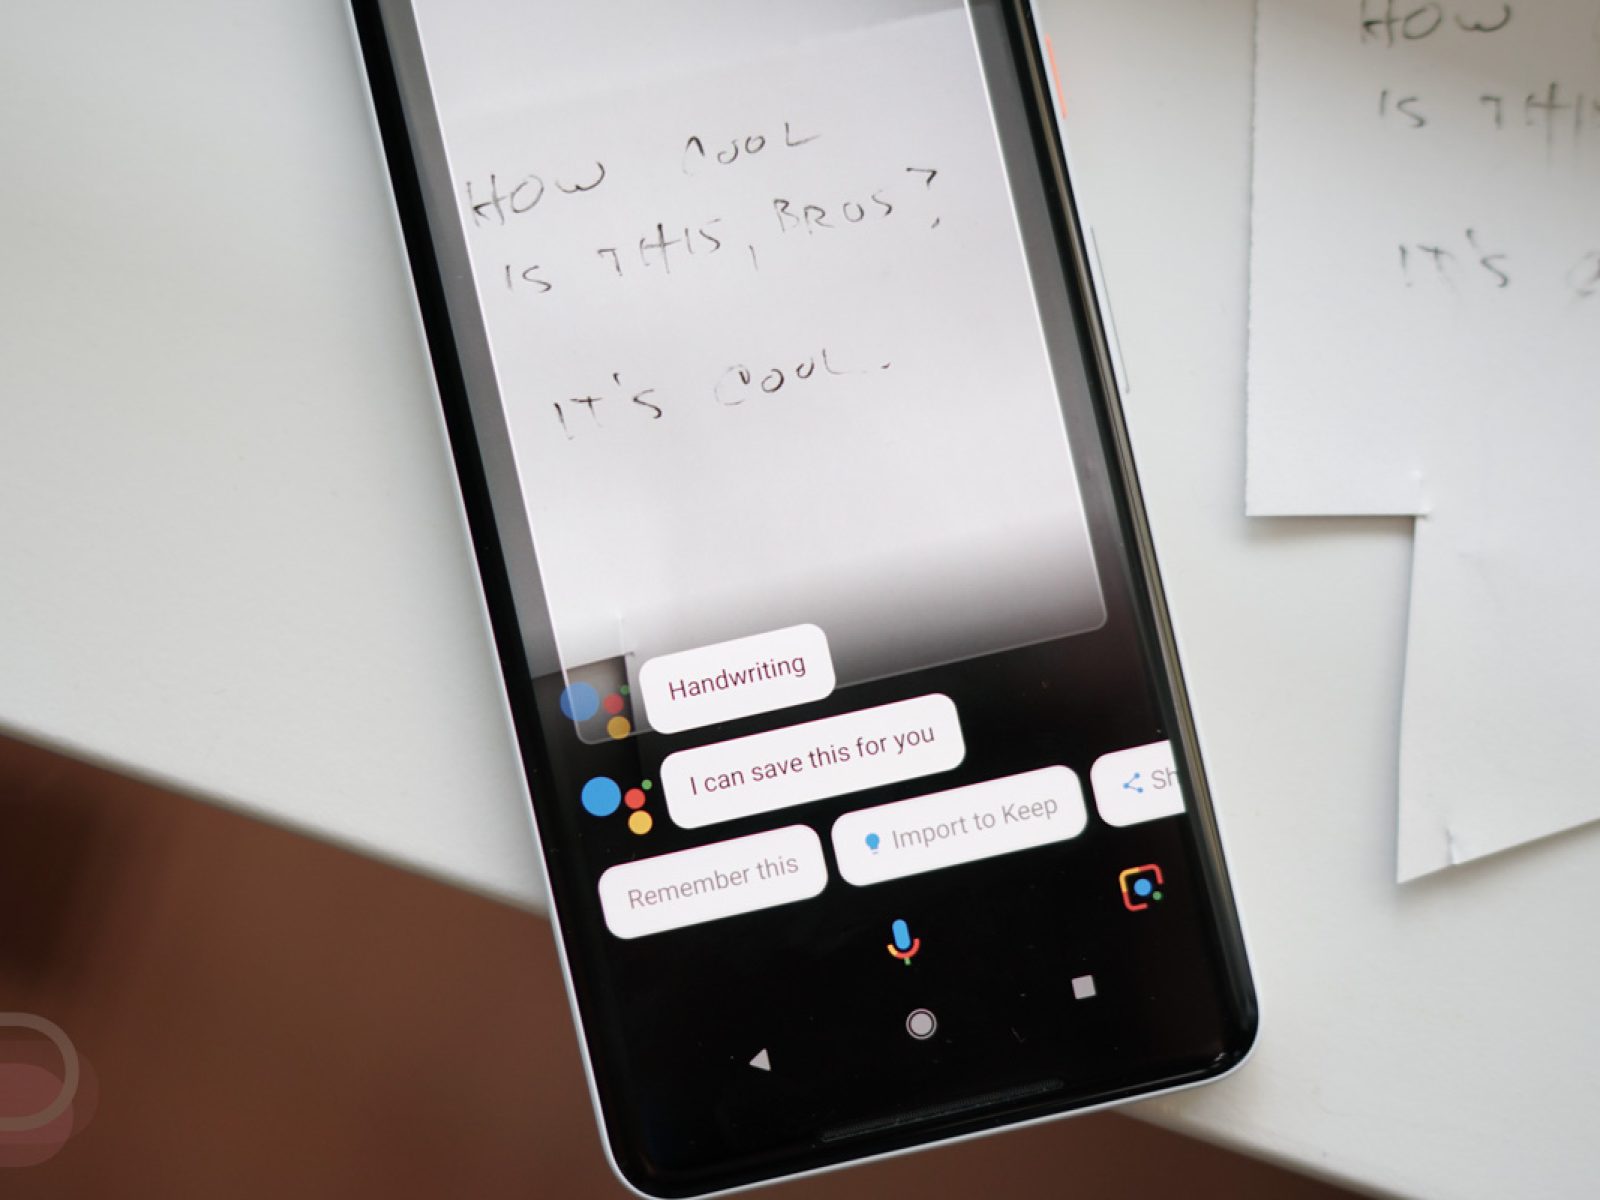 HOW COOL
IS THIS, BROS?
IT'S COOL.
Handwriting
I can save this for you
Remember this
Import to Keep
Sh
HOW
IS THIS
IT'S